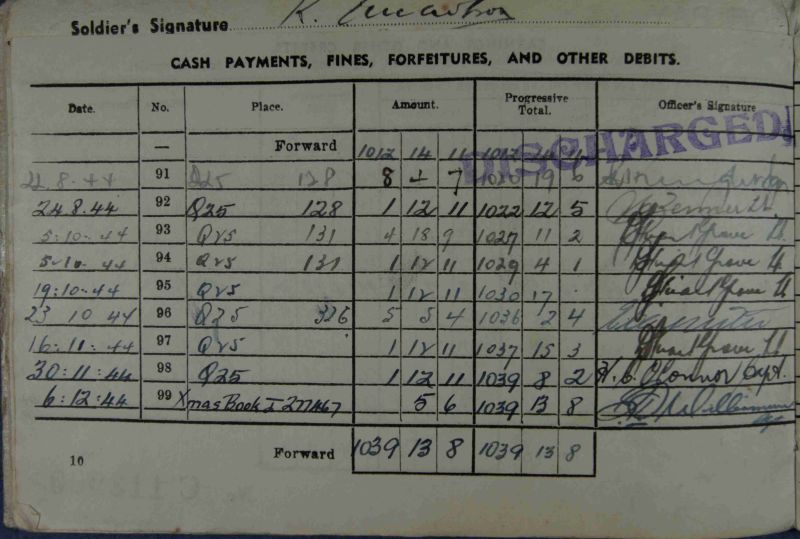 Soldier's Signature K.
CASH PAYMENTS, FINES, FORFEITURES, AND OTHER DEBITS.
Date. No. Place. Amount. Progressive Total. Officer's Signature
— Forward 1012 14 11 1012 14 11
DISCHARGED
22.8.44 91 Q25 128 8 4 7 1020 19 6
24.8.44 92 Q25 128 1 12 11 1022 12 5
5.10.44 93 Q25 131 4 18 9 1027 11 2
5.10.44 94 Q25 131 1 12 11 1029 4 1
19.10.44 95 Q25 1 12 11 1030 17 .
23 10 44 96 Q25 326 5 5 4 1036 2 4
16:11:44 97 Q25 1 12 11 1037 15 3
30:11:44 98 Q25 1 12 11 1039 8 2 H. C. O'Connor Capt.
6:12:44 99 Xmas Book I 277467 5 6 1039 13 8
10 Forward 1039 13 8 1039 13 8